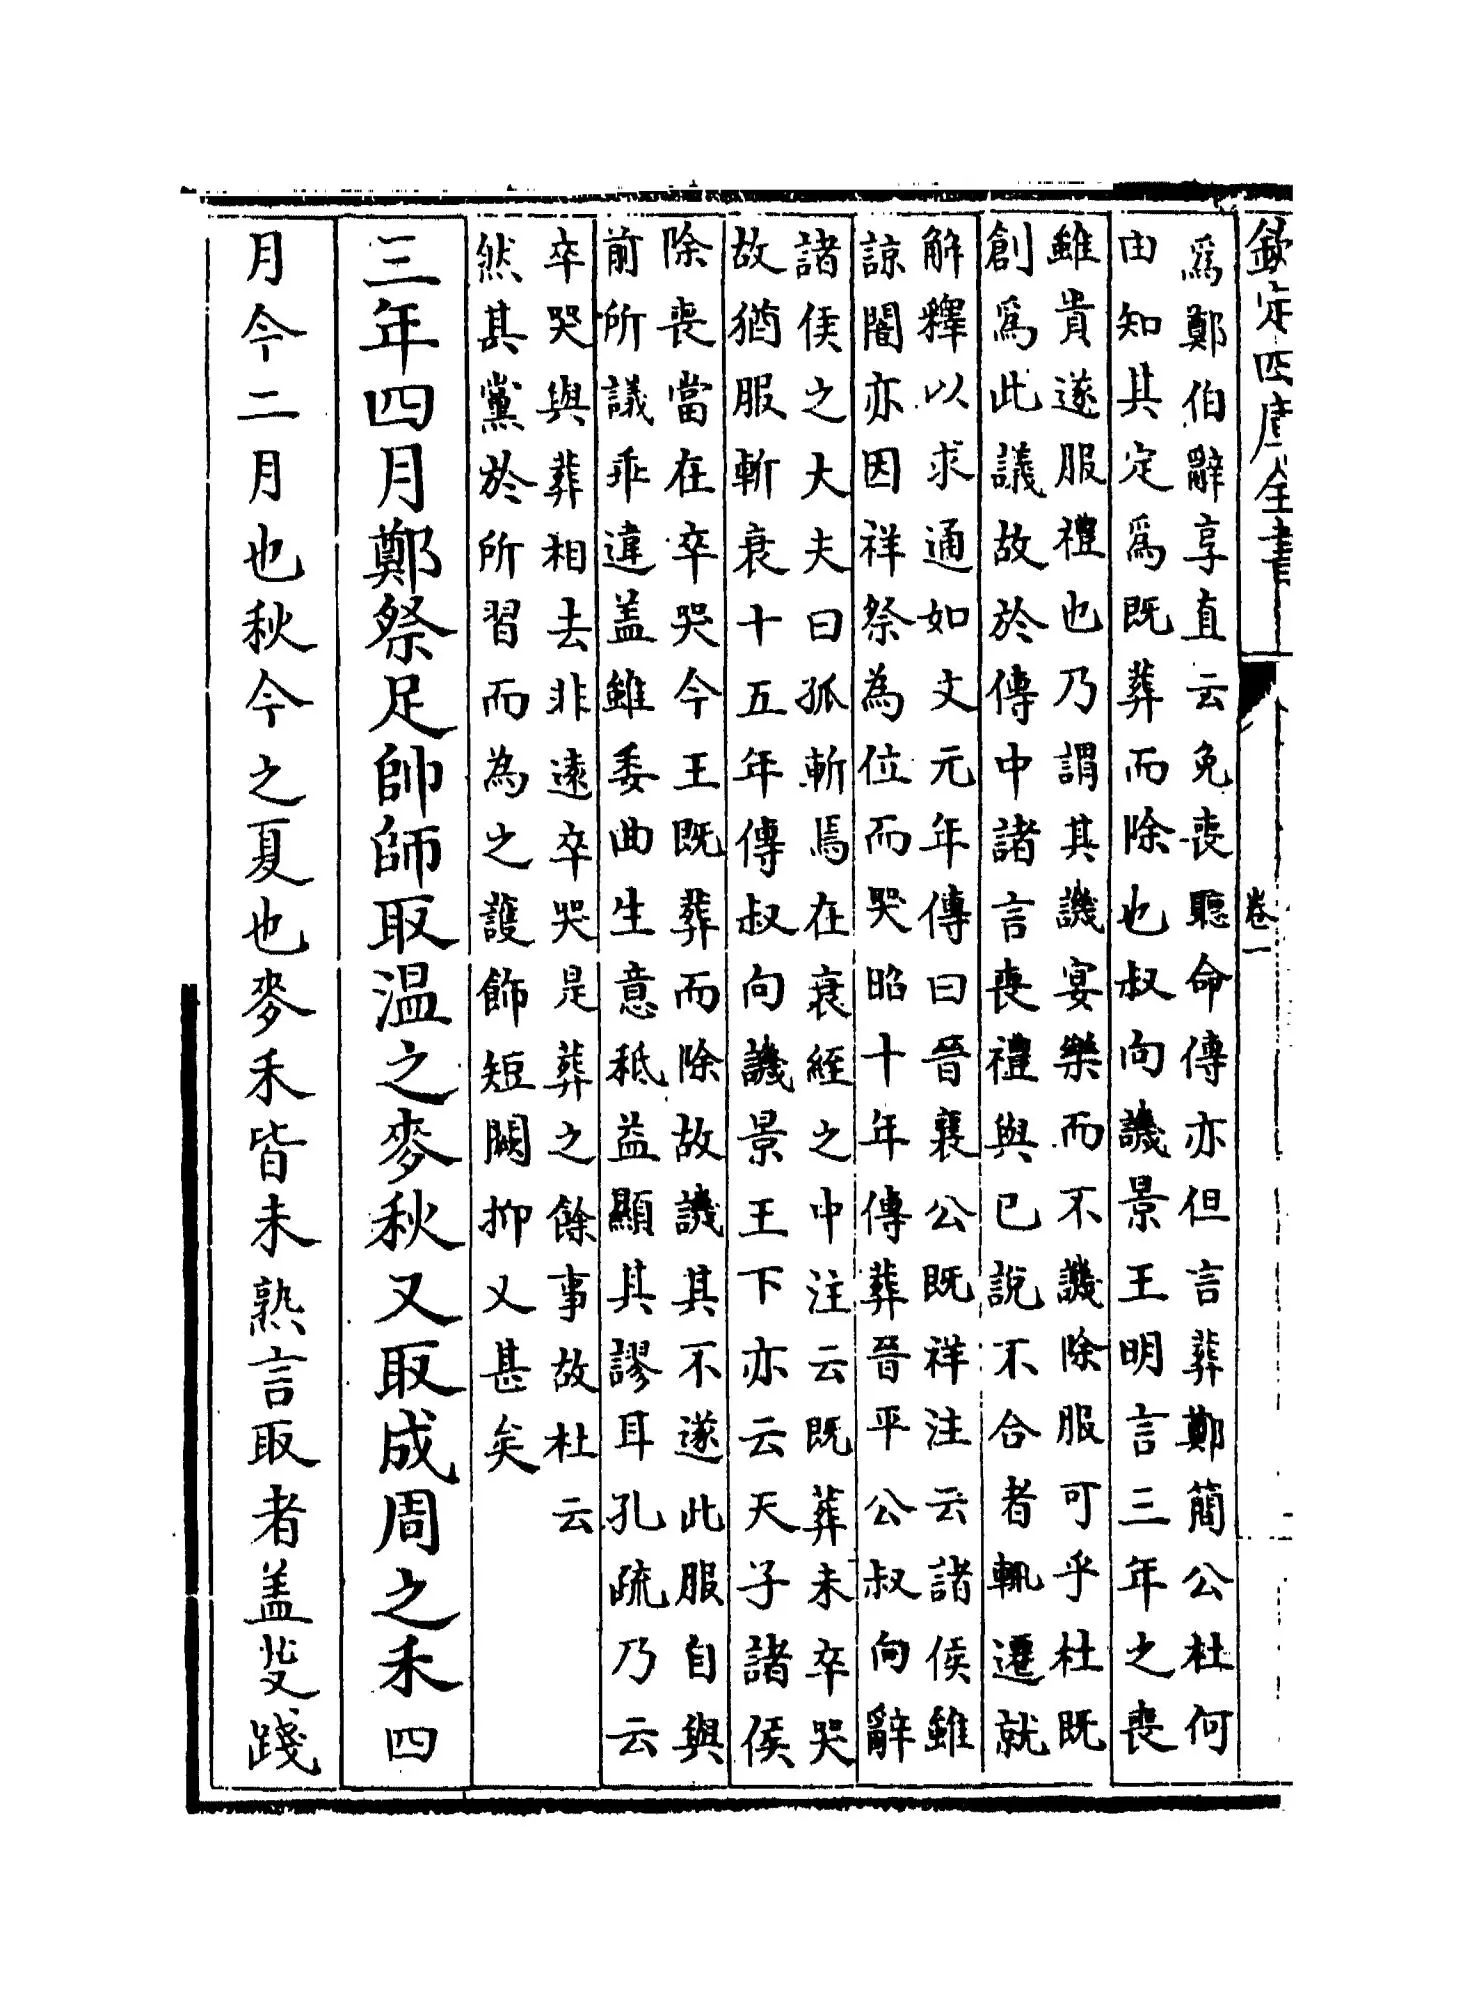 欽定四庫全書
卷一
為鄭伯辭享直云免喪聽命傳亦但言葬鄭簡公杜何
由知其定為既葬而除也叔向譏景王明言三年之喪
雖貴遂服禮也乃謂其譏宴樂而不譏除服可乎杜既
創為此議故於傳中諸言喪禮與已說不合者輒遷就
解釋以求通如文元年傳曰晉襄公既祥注云諸侯雖
諒闇亦因祥祭為位而哭昭十年傳葬晉平公叔向辭
諸侯之大夫曰孤斬焉在衰絰之中注云既葬未卒哭
故猶服斬衰十五年傳叔向譏景王下亦云天子諸侯
除喪當在卒哭今王既葬而除故譏其不遂此服自與
前所議乖違盖雖委曲生意秪益顯其謬耳孔疏乃云
卒哭與葬相去非遠卒哭是葬之餘事故杜云
然其黨於所習而為之護飾短闕抑又甚矣
三年四月鄭祭足帥師取温之麥秋又取成周之禾四
月今二月也秋今之夏也麥禾皆未熟言取者盖芟踐